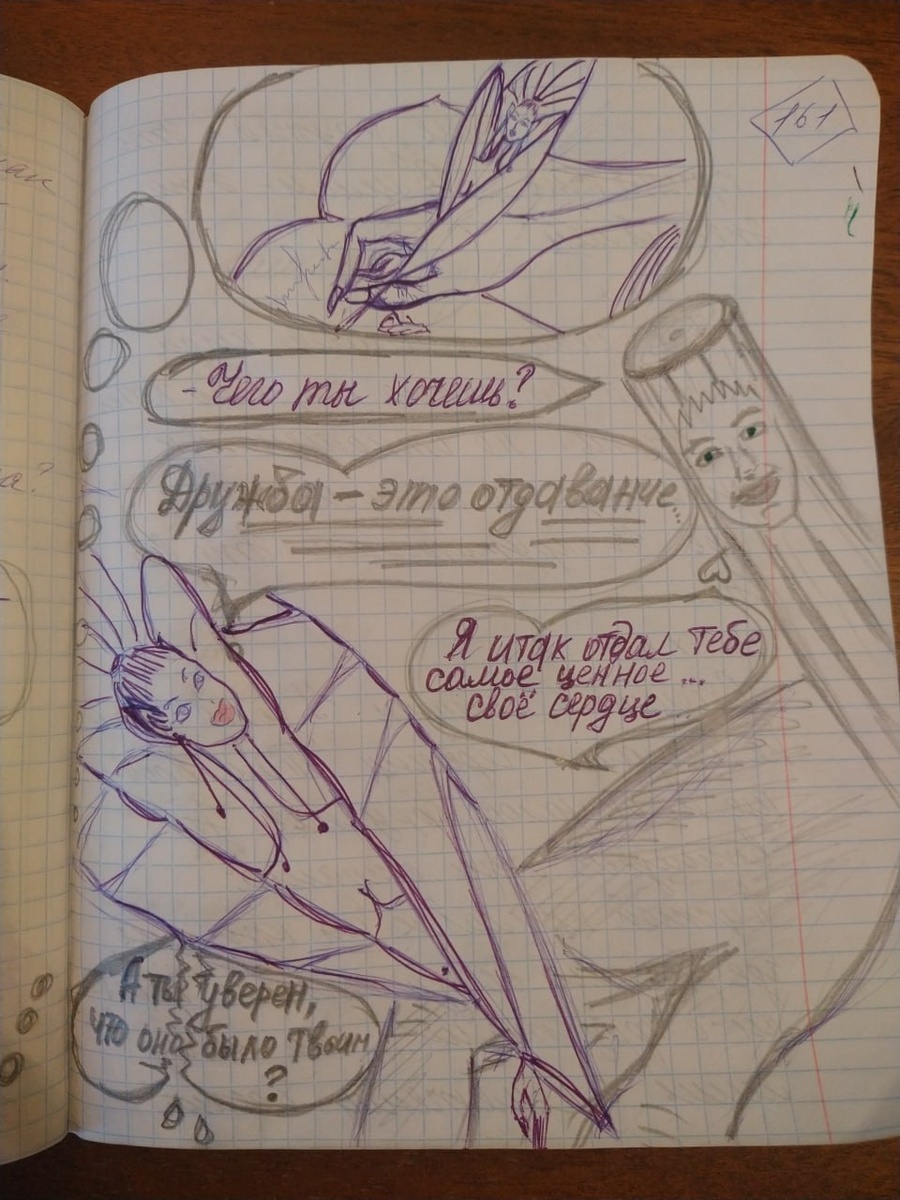 161
- Чего ты хочешь?
Дружба - это отдавание...
Я итак отдал тебе
самое ценное ...
своё сердце ...
А ты уверен,
что оно было твоим
?